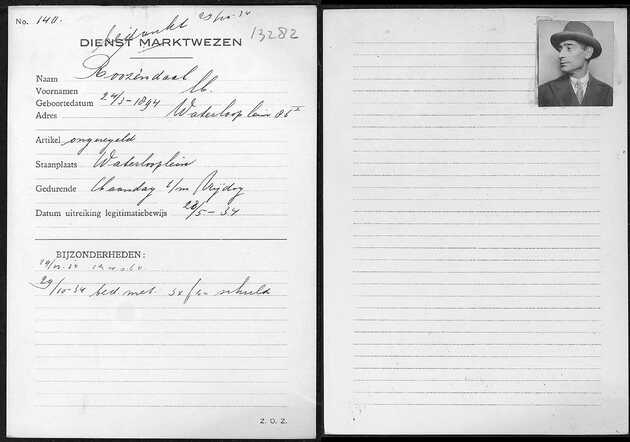 No. 140. bedankt 29/10-34
DIENST MARKTWEZEN 13282
Naam Roozendaal
Voornamen M.
Geboortedatum 24/3-1894
Adres Waterlooplein
Artikel ongeregeld
Staanplaats Waterlooplein
Gedurende Maandag t/m Vrijdag
Datum uitreiking legitimatiebewijs 29/5-34
BIJZONDERHEDEN:
29/10-34 bed. met schuld
Z. O. Z.